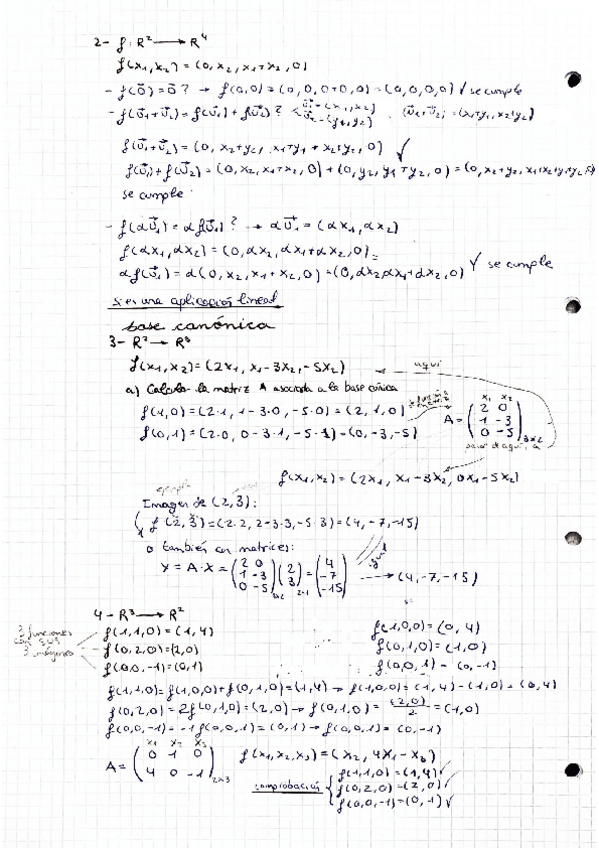 2- f: R² → R⁴
f(x₁,x₂) = (0, x₂, x₁+x₂, 0)
- f(0⃗) = 0⃗ ? → f(0,0) = (0, 0, 0+0, 0) = (0,0,0,0) ✓ se cumple
- f(u⃗₁+u⃗₂) = f(u⃗₁) + f(u⃗₂) ? u⃗₁ = (x₁,x₂) u⃗₂ = (y₁,y₂) (u⃗₁+u⃗₂) = (x₁+y₁, x₂+y₂)
f(u⃗₁+u⃗₂) = (0, x₂+y₂, x₁+y₁ + x₂+y₂, 0) ✓
f(u⃗₁) + f(u⃗₂) = (0, x₂, x₁+x₂, 0) + (0, y₂, y₁+y₂, 0) = (0, x₂+y₂, x₁+x₂+y₁+y₂, 0)
se cumple
- f(αu⃗₁) = αf(u⃗₁) ? → αu⃗₁ = (αx₁, αx₂)
f(αx₁, αx₂) = (0, αx₂, αx₁+αx₂, 0) =
αf(u⃗₁) = α(0, x₂, x₁+x₂, 0) = (0, αx₂, αx₁+αx₂, 0) ✓ se cumple
si es una aplicación lineal
base canónica
3- R² → R³
f(x₁,x₂) = (2x₁, x₁-3x₂, -5x₂) aquí
a) Calcula la matriz A asociada a la base cónica
f(1,0) = (2·1, 1-3·0, -5·0) = (2, 1, 0)
f(0,1) = (2·0, 0-3·1, -5·1) = (0, -3, -5)
x₁ x₂
A = (2 0
1 -3
0 -5) 3x2
pasar de aquí, a
f(x₁,x₂) = (2x₁, x₁-3x₂, 0x₁-5x₂)
ejemplo
Imagen de (2,3):
f(2,3) = (2·2, 2-3·3, -5·3) = (4, -7, -15)
o también con matrices: igual
Y = A·X = (2 0
1 -3
0 -5) 3x2 (2
3) 2x1 = (4
-7
-15) → (4, -7, -15)
4- R³ → R²
3 funciones con sus 3 imágenes
f(1,1,0) = (1,4)
f(0,2,0) = (2,0)
f(0,0,-1) = (0,1)
f(1,0,0) = (0,4)
f(0,1,0) = (1,0)
f(0,0,1) = (0,-1)
f(1,1,0) = f(1,0,0) + f(0,1,0) = (1,4) → f(1,0,0) = (1,4) - (1,0) = (0,4)
f(0,2,0) = 2f(0,1,0) = (2,0) → f(0,1,0) = (2,0)/2 = (1,0)
f(0,0,-1) = -1f(0,0,1) = (0,1) → f(0,0,1) = (0,-1)
x₁ x₂ x₃
A = (0 1 0
4 0 -1) 2x3
f(x₁,x₂,x₃) = (x₂, 4x₁-x₃)
comprobación
f(1,1,0) = (1,4) ✓
f(0,2,0) = (2,0) ✓
f(0,0,-1) = (0,1) ✓